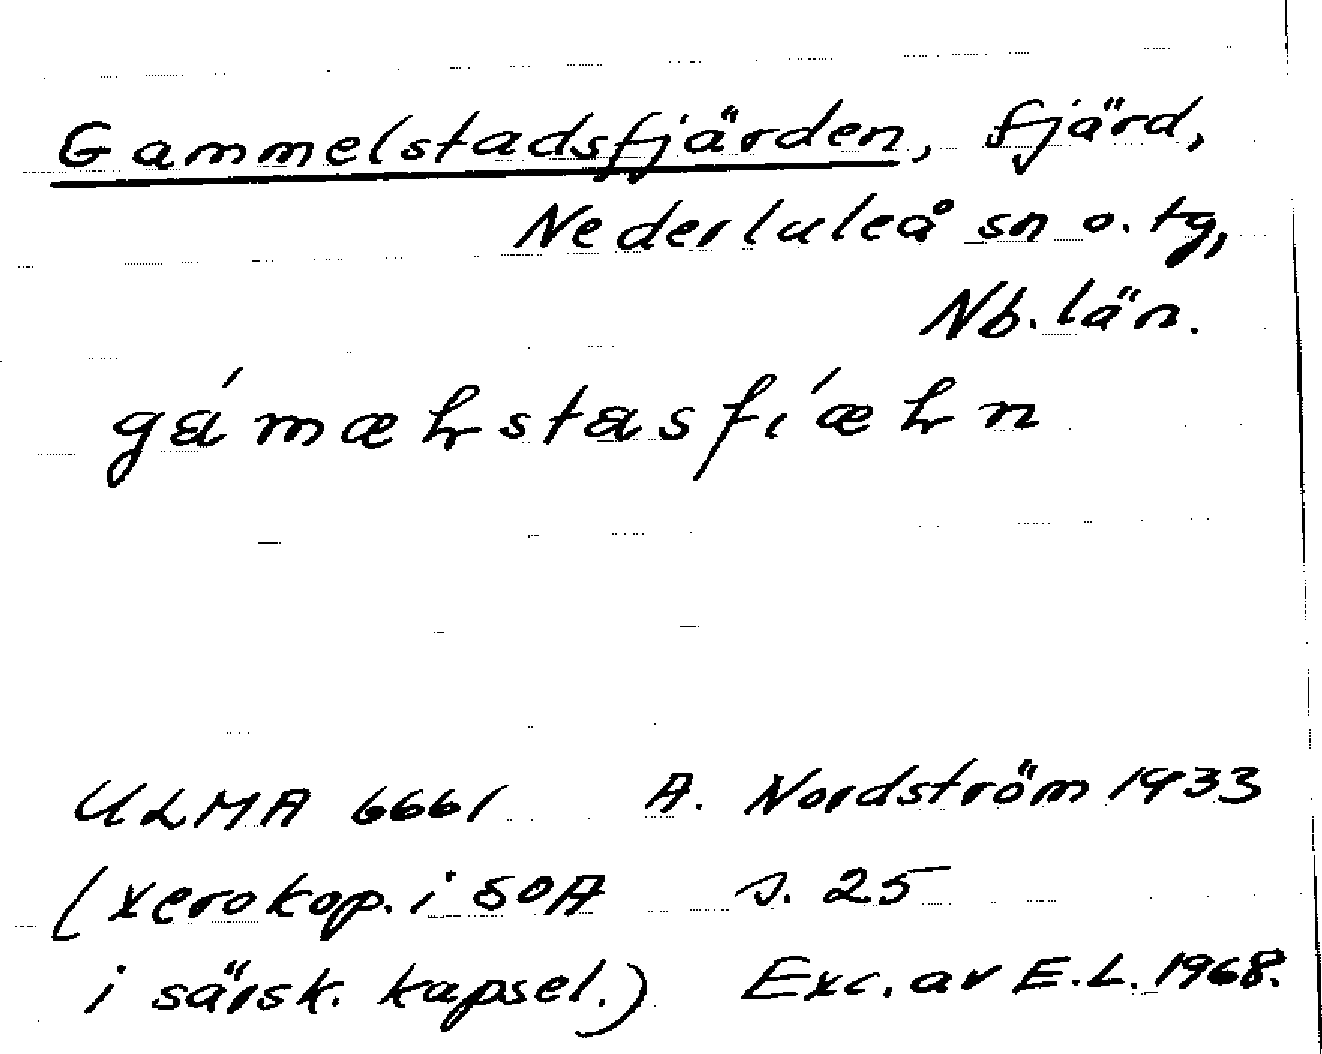 Gammelstadsfjärden, fjärd,
Nederluleå sn o. tg,
Nb. län.
ULMA 6661 A. Nordström 1933
(xerokop. i SOA s. 25
i särsk. kapsel.) Exc. av E.L. 1968.